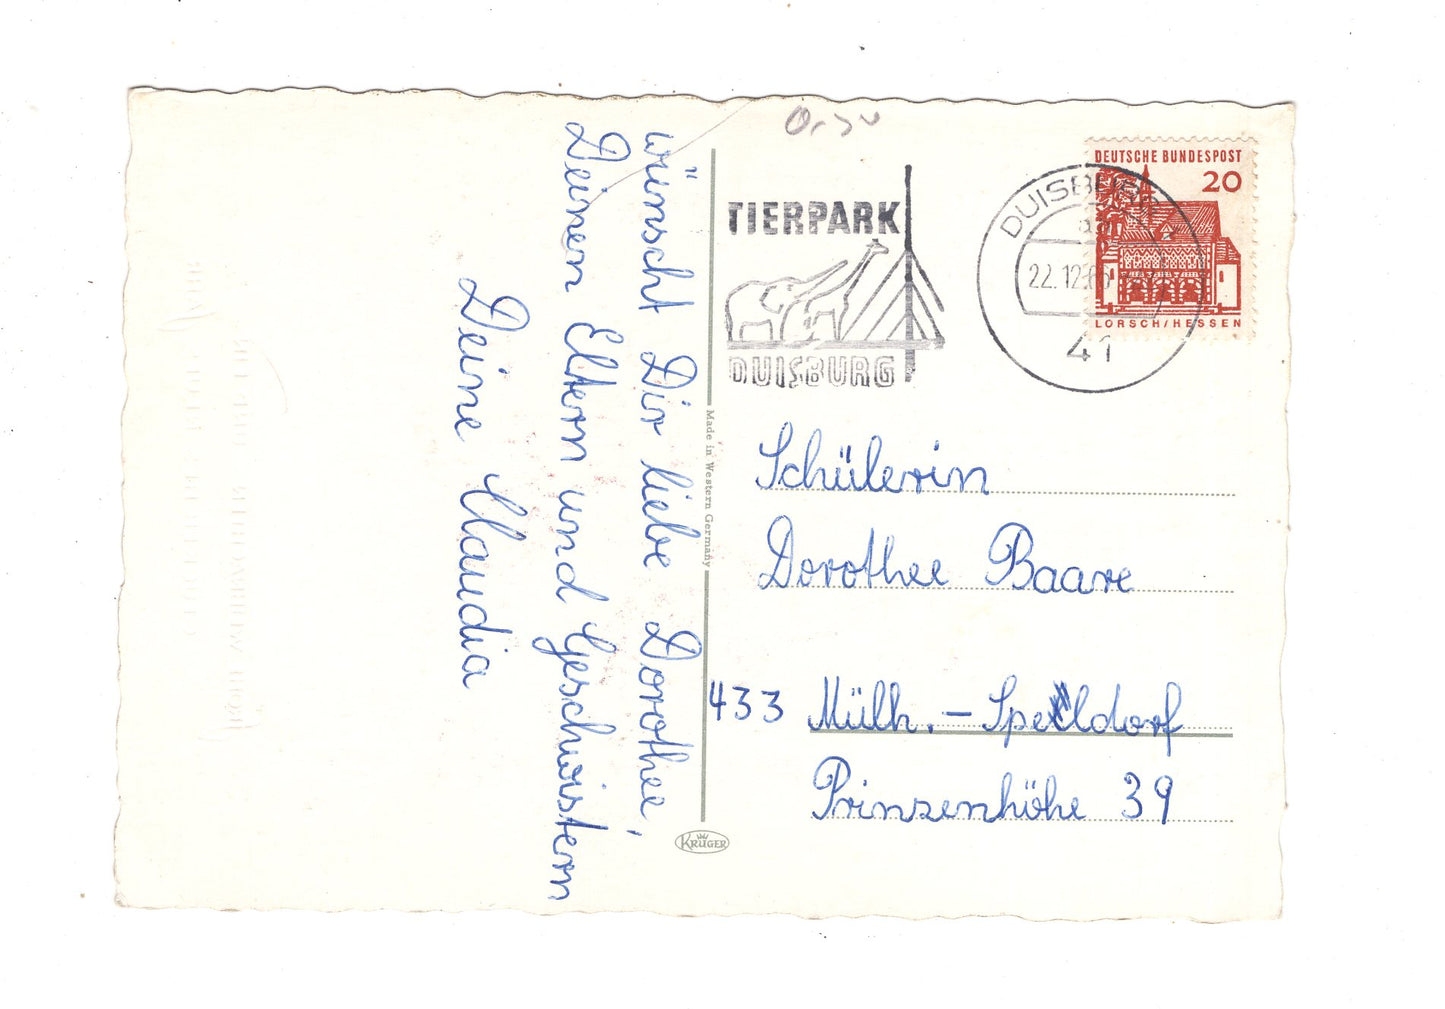 wünscht Dir liebe Dorothee,
Deinen Eltern und Geschwistern
Deine Claudia
Made in Western Germany
KRÜGER
TIERPARK
DUISBURG
DUISBURG
22.12.66
41
DEUTSCHE BUNDESPOST
20
LORSCH/HESSEN
Schülerin
Dorothee Baare
433 Mülh. - Speldorf
Prinzenhöhe 39